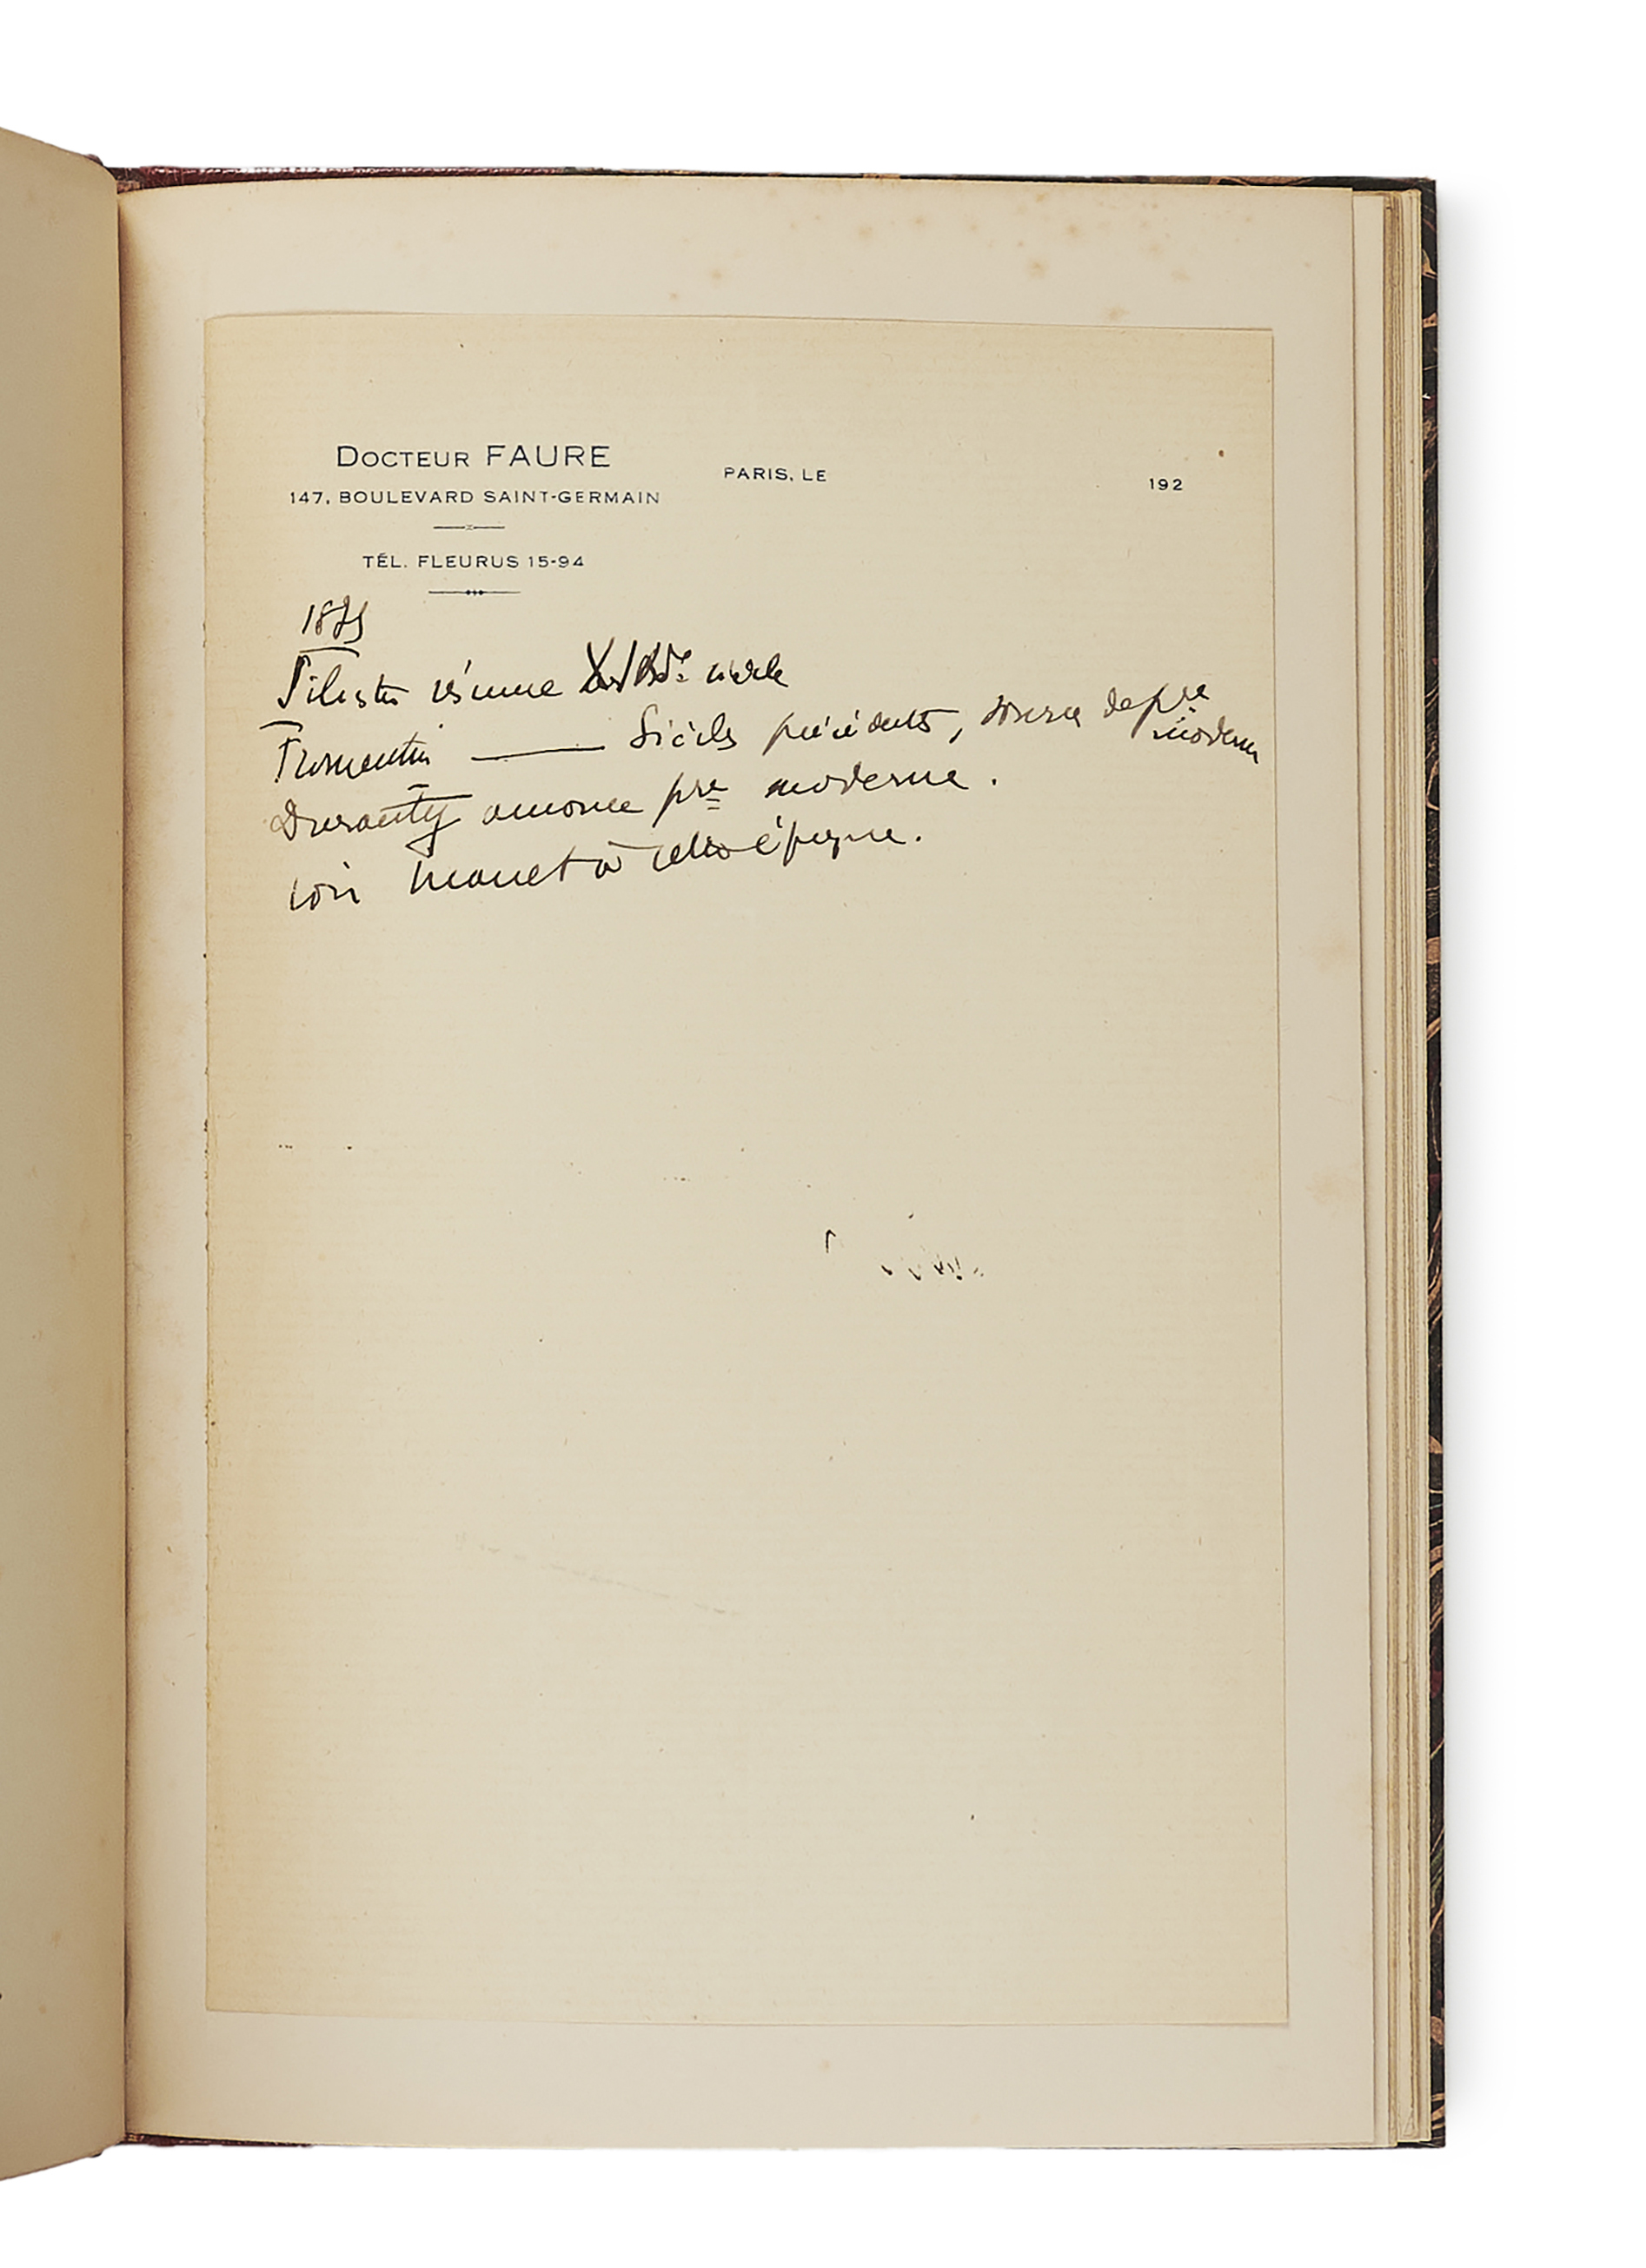 DOCTEUR FAURE
147, BOULEVARD SAINT-GERMAIN
TÉL. FLEURUS 15-94
PARIS, LE 192
résume siècle
Fromentin ——— siècles précédents, source de pre moderne
Duranty annonce pre moderne.
voir Manet à cette époque.